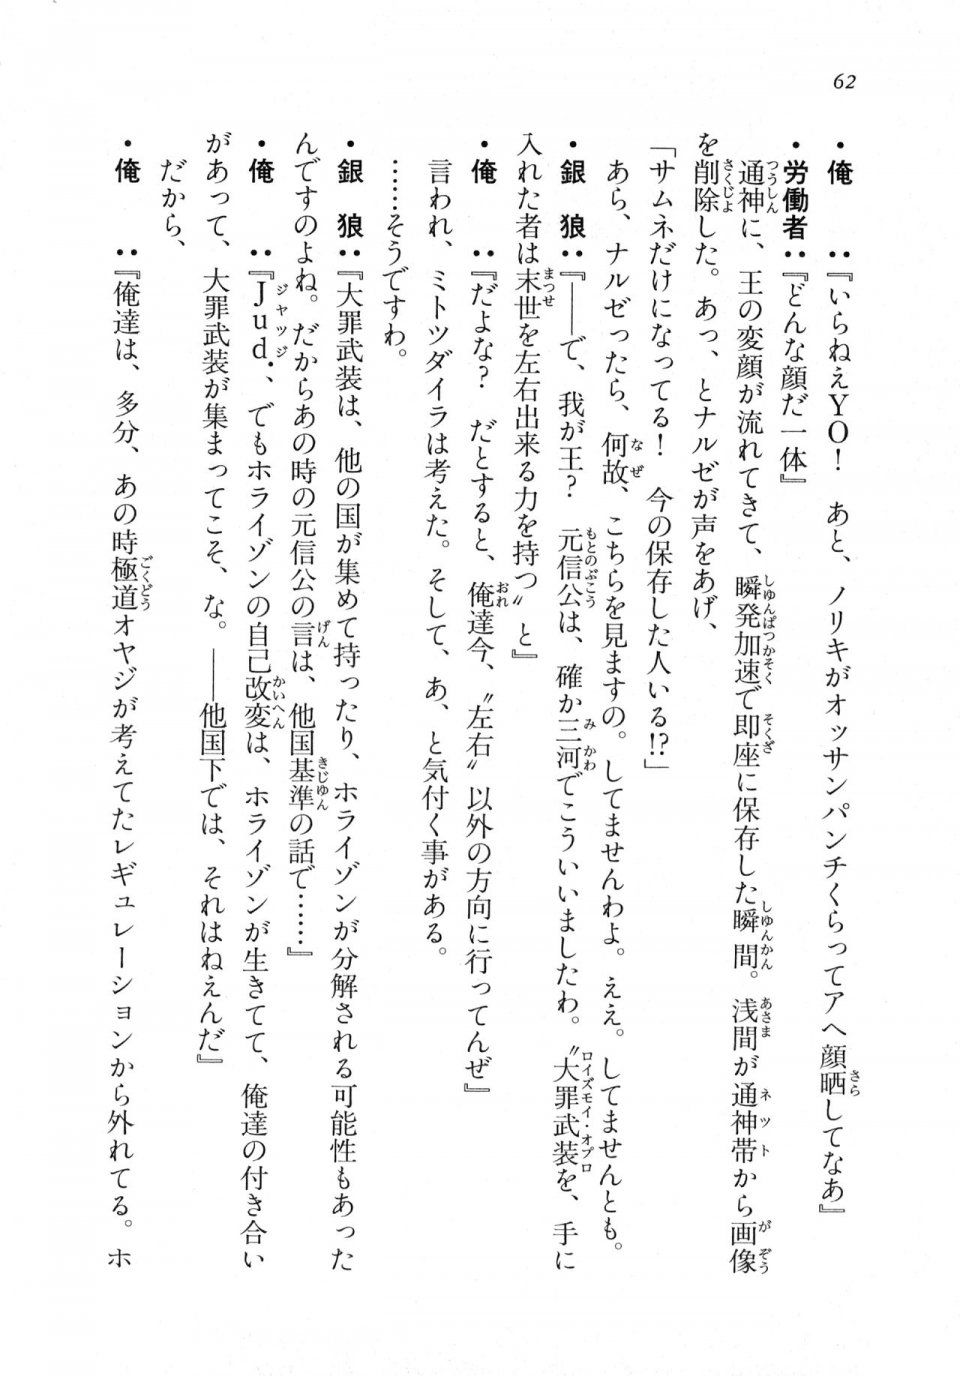 62
・俺　　：『いらねえYO！　あと、ノリキがオッサンパンチくらってアヘ顔晒してなあ』
・労働者：『どんな顔だ一体』
　通神に、王の変顔が流れてきて、瞬発加速で即座に保存した瞬間。浅間が通神帯から画像
を削除した。あっ、とナルゼが声をあげ、
「サムネだけになってる！　今の保存した人いる!?」
　あら、ナルゼったら、何故、こちらを見ますの。してませんわよ。ええ。してませんとも。
・銀　狼：『――で、我が王？　元信公は、確か三河でこういいましたわ。〝大罪武装を、手に
入れた者は末世を左右出来る力を持つ〟と』
・俺　　：『だよな？　だとすると、俺達今、〝左右〟以外の方向に行ってんぜ』
　言われ、ミトツダイラは考えた。そして、あ、と気付く事がある。
　……そうですわ。
・銀　狼：『大罪武装は、他の国が集めて持ったり、ホライゾンが分解される可能性もあった
んですのよね。だからあの時の元信公の言は、他国基準の話で……』
・俺　　：『Ｊｕｄ．、でもホライゾンの自己改変は、ホライゾンが生きてて、俺達の付き合い
があって、大罪武装が集まってこそ、な。――他国下では、それはねえんだ』
　だから、
・俺　　：『俺達は、多分、あの時極道オヤジが考えてたレギュレーションから外れてる。ホ